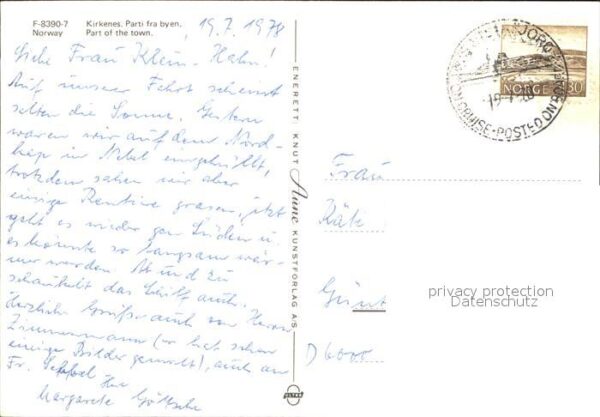 F-8390-7 Kirkenes. Parti fra byen.
Norway Part of the town.
19.7.1978
Liebe Frau Klein-Hahn!
Auf unserer Fahrt scheint
selten die Sonne. Gestern
waren wir auf dem Nord-
kap in Nebel eingehüllt,
trotzdem sahen wir aber
einige Rentiere grasen, jetzt
geht es wieder gen Süden u.
es könnte so langsam wär-
mer werden. Ab und zu
schaukelt das Schiff auch.
Herzliche Grüße auch von Herrn
Zimmermann (er hat schon
einige Bilder gemalt), auch an
Fr.
Ihre
Margarete
ENERETT: KNUT Aune KUNSTFORLAG A/S
NORGE 80
CRUISE · POSTED ON
Frau
Käte
privacy protection
Datenschutz
D 6000